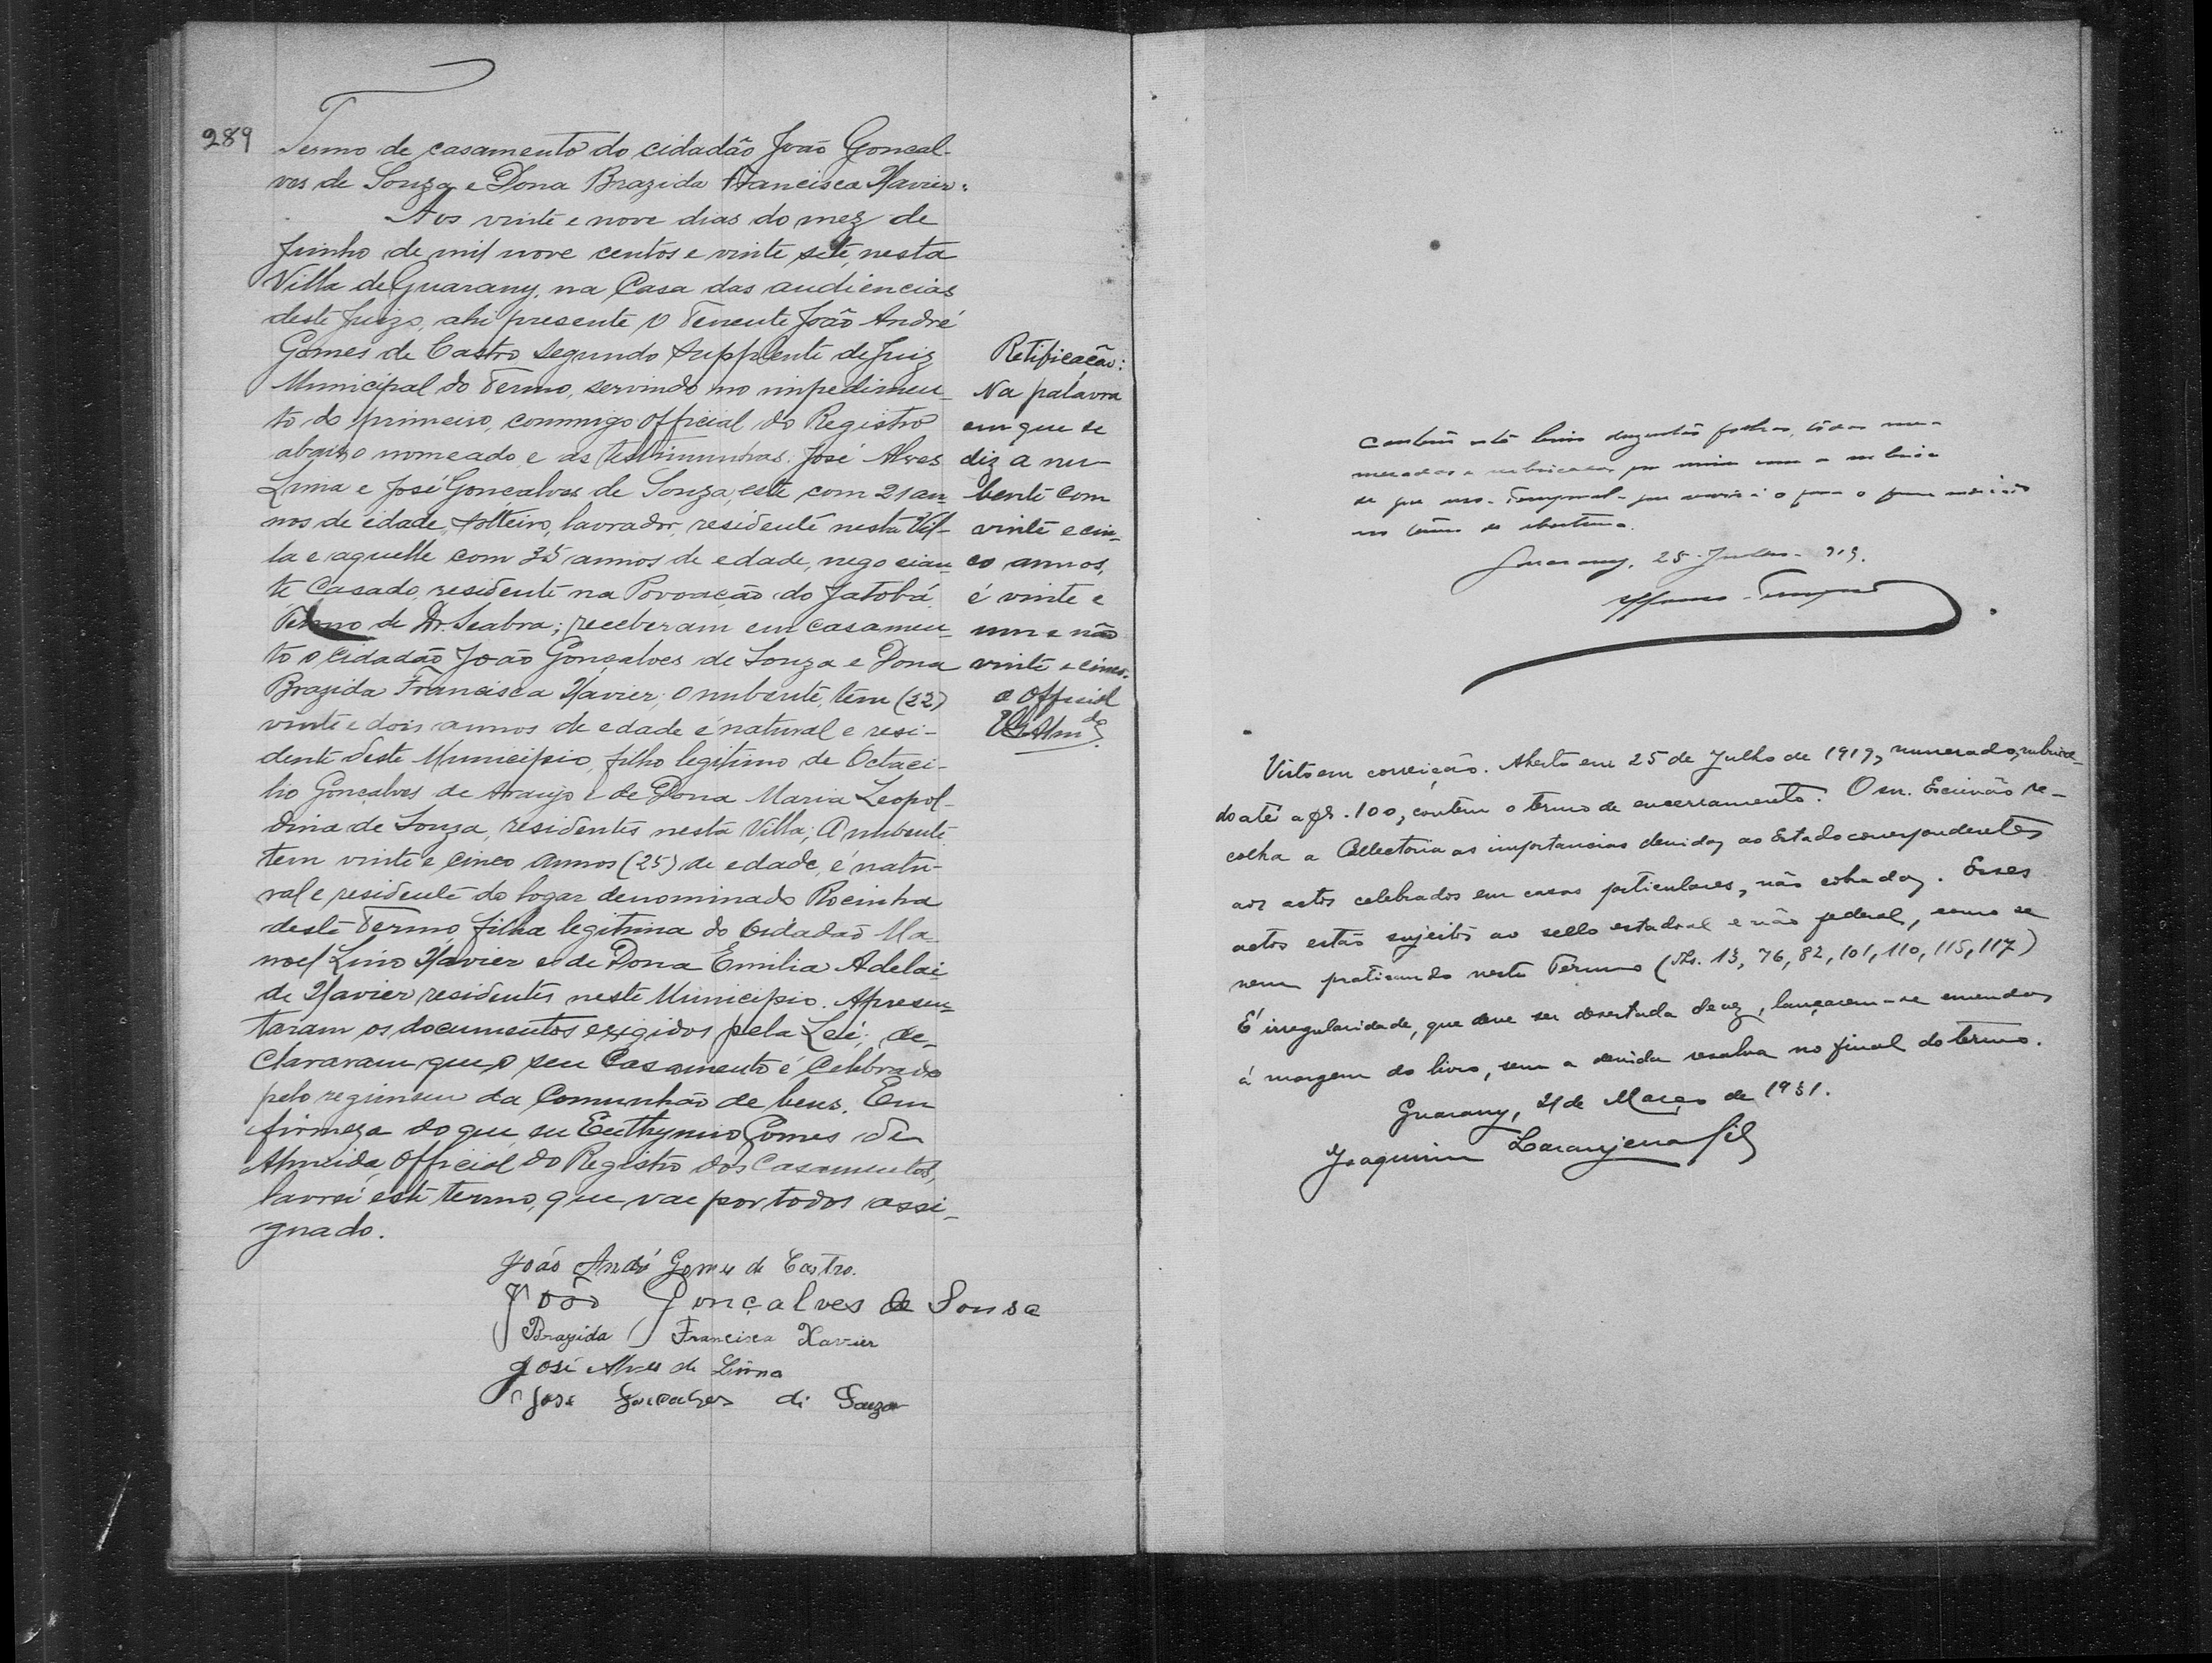 289
Termo de casamento do cidadão João Goncal-
ves de Souza e Dona Brazida Francisca Xavier.
Aos vinte e nove dias do mez de
Junho de mil nove centos e vinte sete, nesta
Villa de Guarany, na Casa das audiencias
deste Juizo, ahi presente o Tenente João André
Gomes de Castro segundo supplente de Juiz
Municipal do Termo, servindo no impedimen-
to do primeiro, commigo official do Registro
abaixo nomeado e as testimunhas: José Alves
Lima e José Gonçalves de Souza, este com 21 an-
nos de idade, solteiro, lavrador, residente nesta Vil-
la e aquelle com 35 annos de edade, negocian-
te Casado, residente na Povoação do Jatobá
Termo de Dr. Seabra; receberam em casamen-
to o cidadão João Gonçalves de Souza e Dona
Brazida Francisca Xavier; o nubente, tem (22)
vinte e dois annos de edade é natural e resi-
dente deste Municipio, filho legitimo de Octaci-
lio Gonçalves de Araujo e de Dona Maria Leopol-
dina de Souza, residentes nesta Villa; A nubente
tem vinte e cinco annos (25) de edade, é natu-
ral e residente do logar denominado Rocinha
deste Termo, filha legitima do Cidadão Ma-
noel Lino Xavier e de Dona Emilia Adelai
de Xavier residentes neste Municipio. Apresen-
taram os documentos exigidos pela Lei; de-
clararam que o seu Casamento é Celebrado
pelo regimen da Comunhão de bens. Em
firmeza do que, eu Euthymio Gomes de
Almeida, Official do Registro dos Casamentos,
lavrei este termo, que vae por todos assi-
gnado.
João André Gomes de Castro.
João Gonçalves de Sousa
Brazida Francisca Xavier
José Alves de Lima
José Goncalves di Souza
Retificação:
Na palavra
em que se
diz a nu-
bente com
vinte e cin-
co annos,
é vinte e
um e não
vinte e cinco.
o Official
Contém este livro duzentas folhas, todas nu-
meradas e rubricadas por mim com a rubrica
de que uso
no termo de abertura.
Guarany, 25 Julho 919.
Visto em correição. Aberto em 25 de Julho de 1919, numerado, rubrica-
do até a fls. 100, contém o termo de encerramento. O snr. Escrivão re-
colha a Collectoria as importancias devidas ao Estado correspondentes
aos actos celebrados em casas particulares, não cobradas. Esses
actos estão sujeitos ao sello estadual e não federal, como se
vem praticando neste Termo (fls. 13, 76, 82, 101, 110, 115, 117)
É irregularidade, que deve ser desertada de vez, lançarem-se emendas
á margem do livro, sem a devida resalva no final do termo.
Guarany, 21 de Março de 1931.
Joaquim Laranjeira